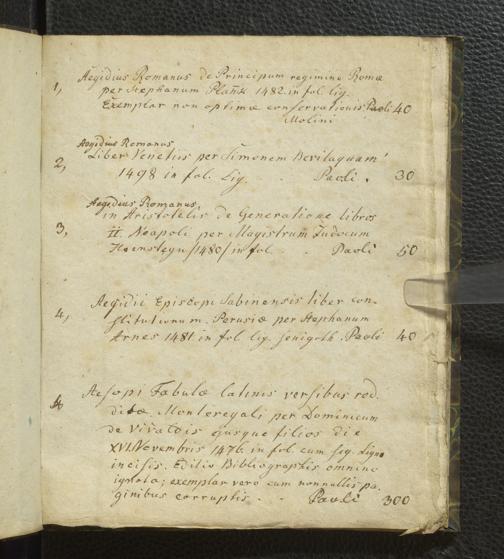 1, Aegidius Romanus de Principum regimine Romæ
per Stephanum Plank 1482. in fol. lig.
Exemplar non optimæ conservationis Paoli 40
Molini
Aegidius Romanus
2, Liber Venetiis per Simonem Bevilaquam
1498 in fol. lig. - Paoli. 30
Aegidius Romanus,
3, in Aristotelis de Generatione libros
II. Neapoli per Magistrum Judocum
Hoensteyn /1480/ in fol. - Paoli 50
4, Aegidii Episcopi Sabinensis liber con-
stitutionum. Perusiæ per Stephanum
Arnes 1481 in fol. lig. Paoli 40
Aesopi Fabulæ latinis versibus red-
ditæ. Monteregali per Dominicum
de Vivaldis ejusque filios die
XVI. Novembris 1476. in fol. cum fig. ligno
incisis. Editio Bibliographis omnino
ignota; exemplar vero cum nonnullis pa-
ginibus corruptis. - - Paoli 300